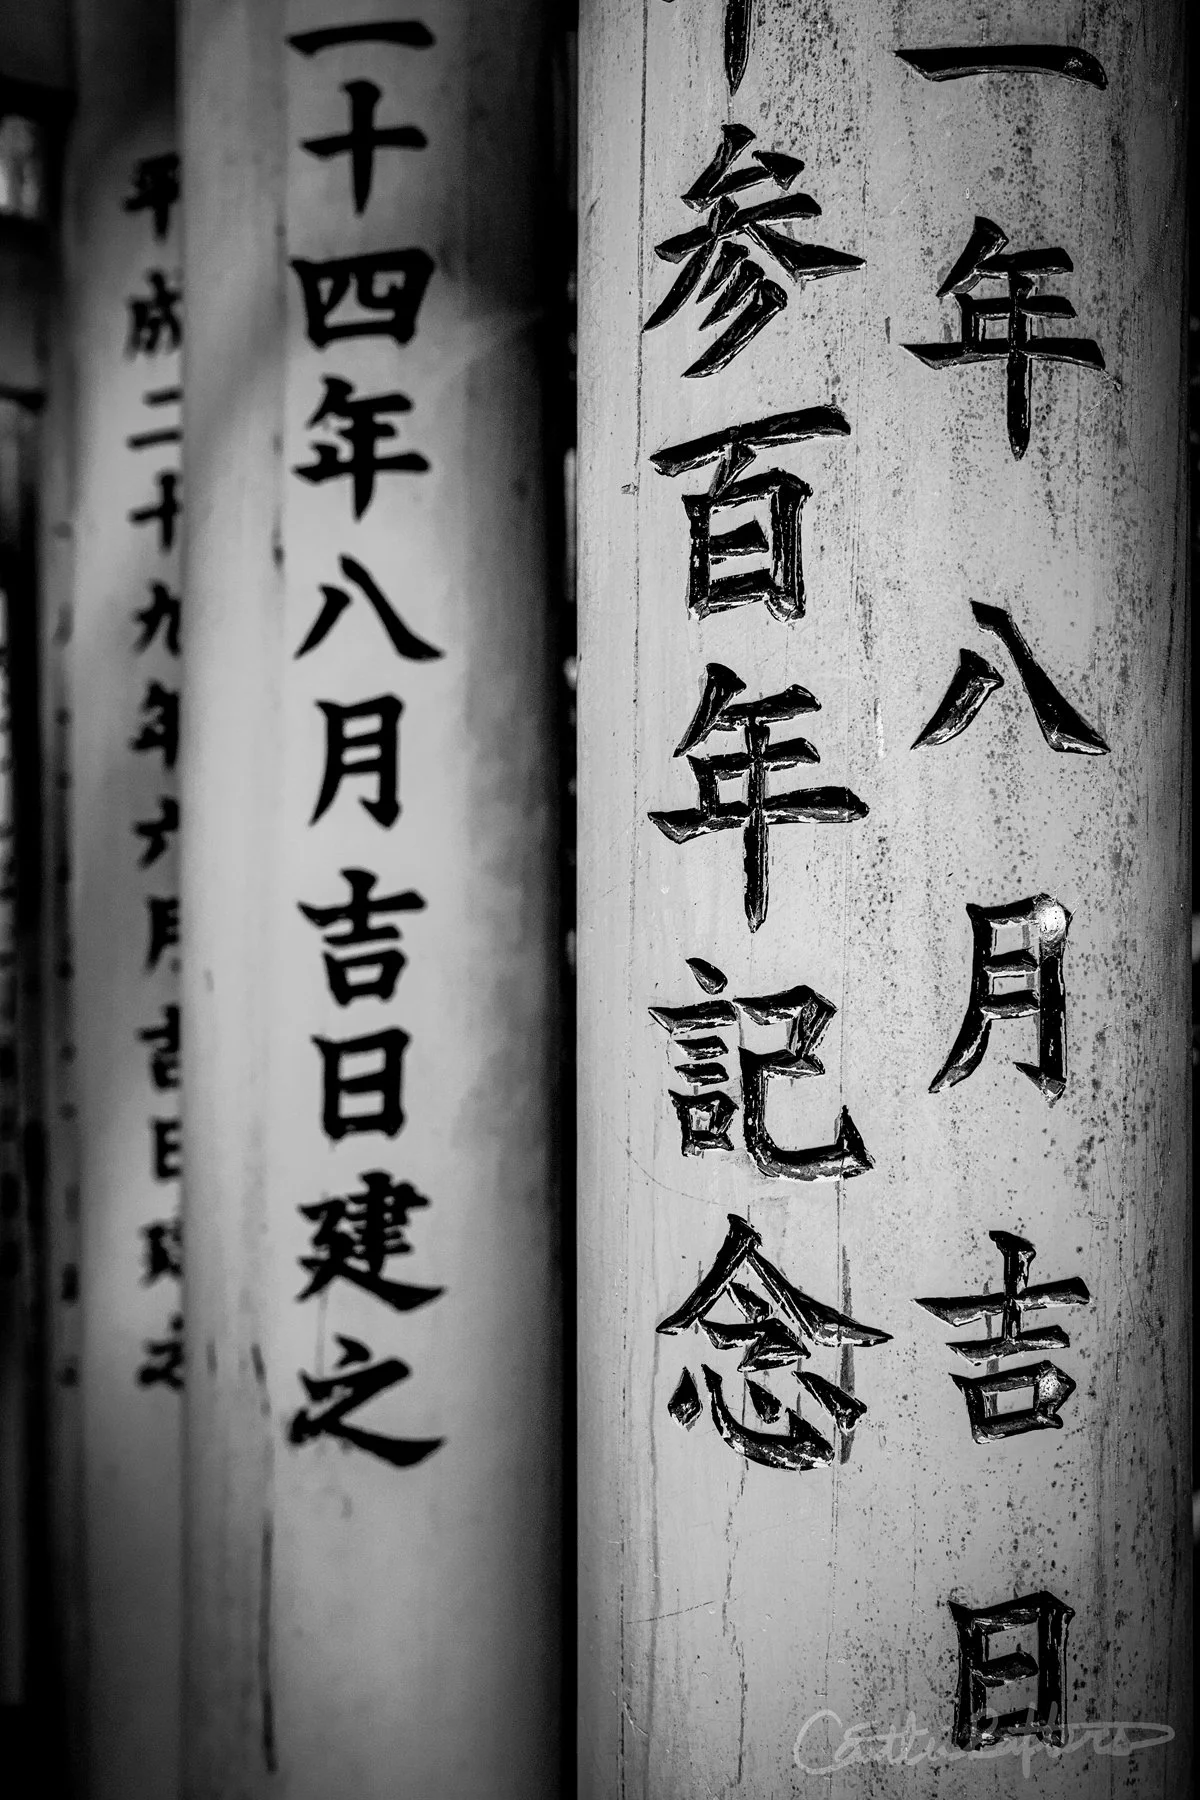 一年八月吉日
参百年記念
一十四年八月吉日建之
平成二十九年六月吉日建之